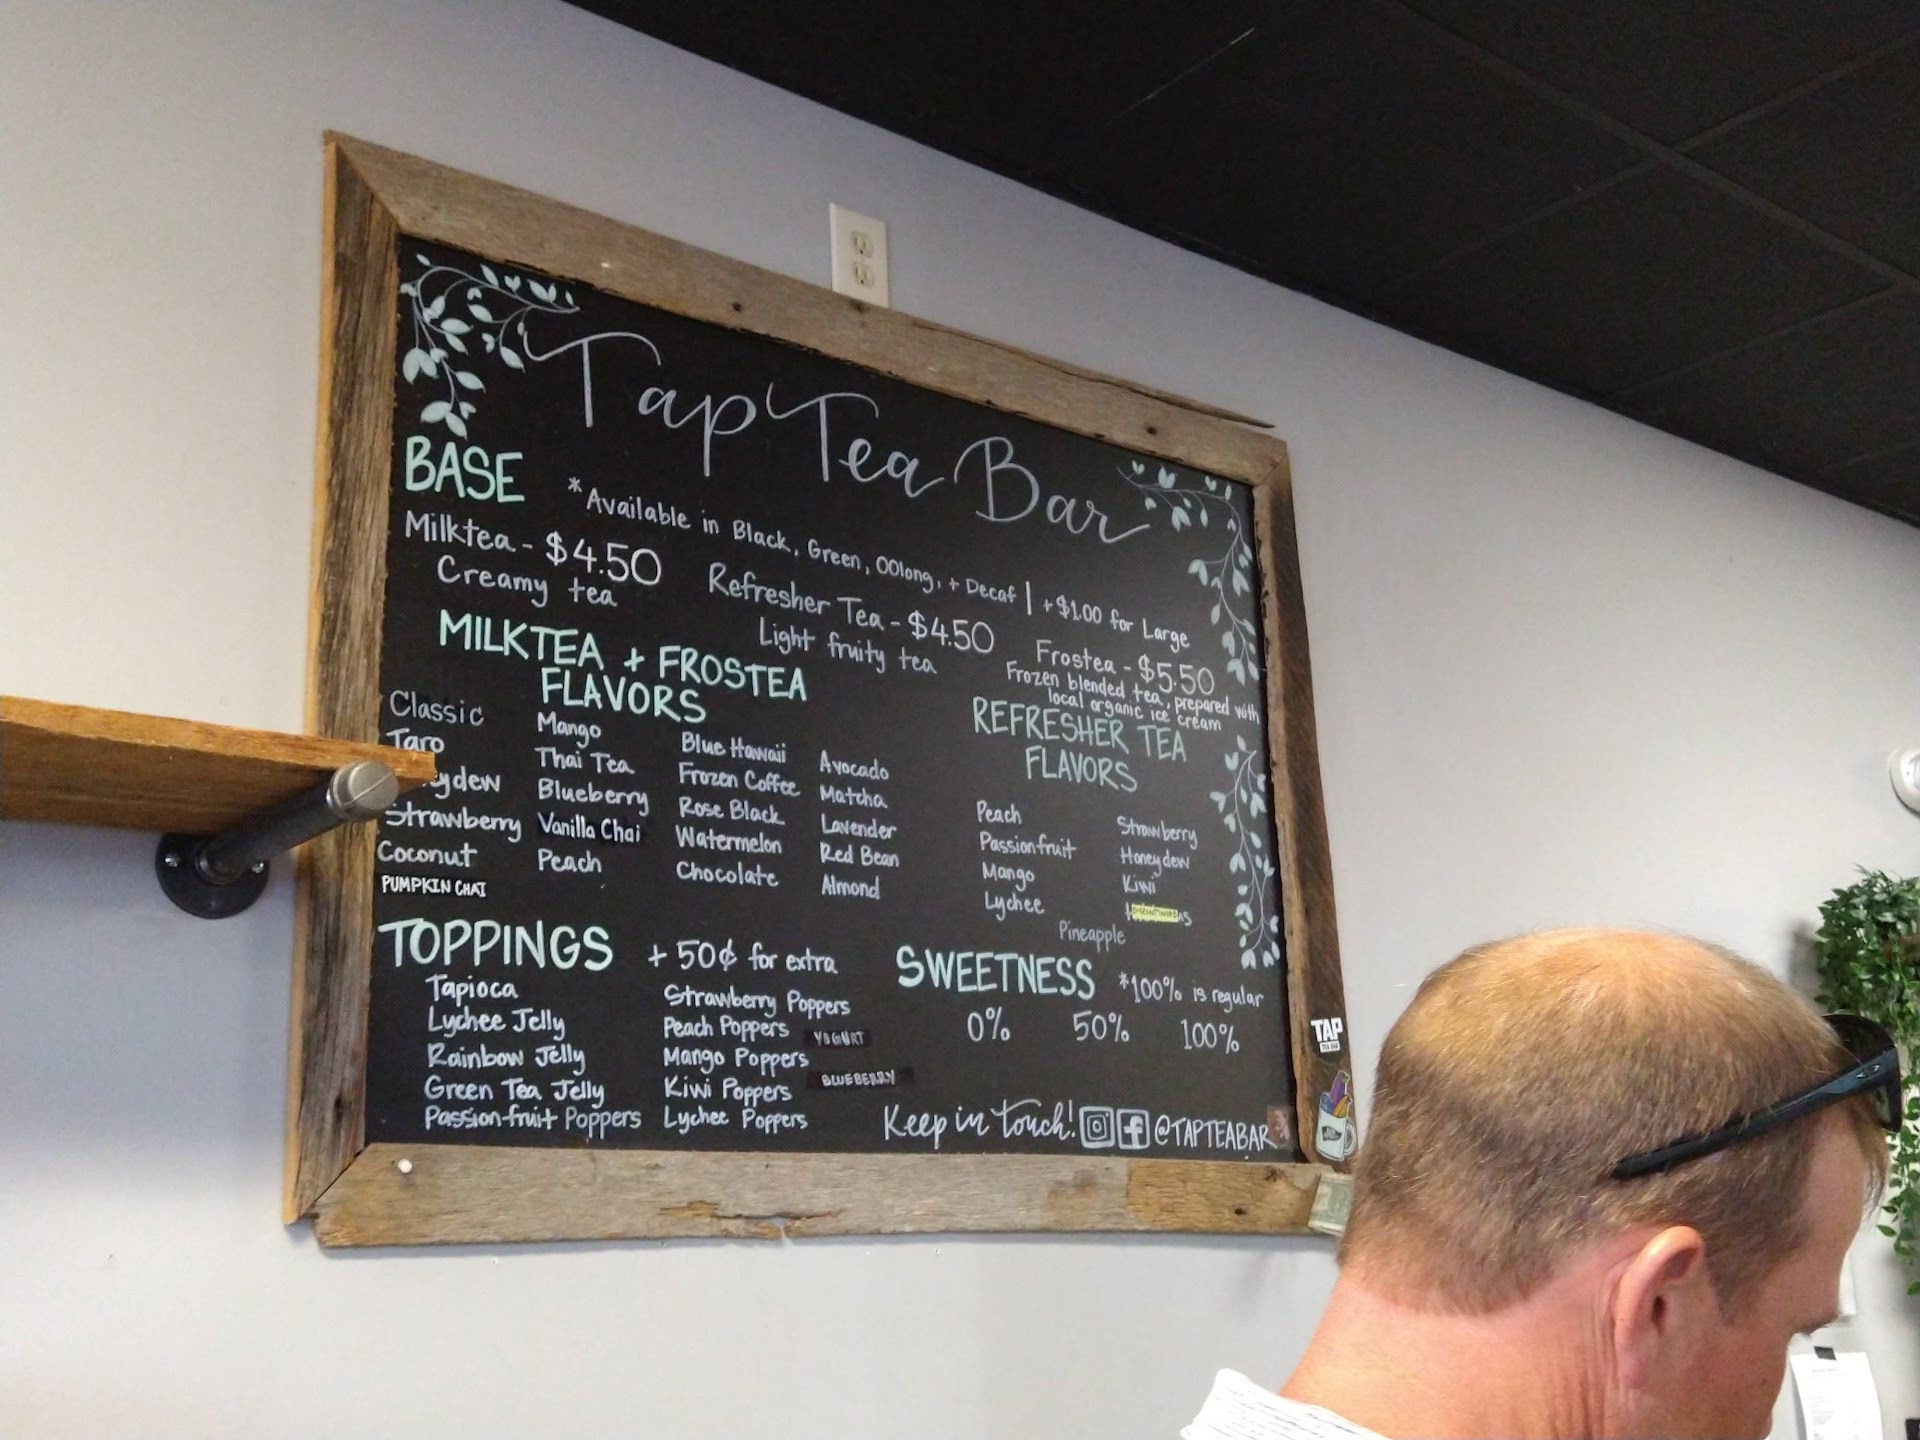 Tap Tea Bar
BASE
*Available in Black, Green, OOlong, + Decaf | +$1.00 for Large
Milktea - $4.50
Creamy tea
Refresher Tea - $4.50
Light fruity tea
Frostea - $5.50
Frozen blended tea, prepared with
local organic ice cream
MILKTEA + FROSTEA
FLAVORS
Classic
Taro
eydew
Strawberry
Coconut
PUMPKIN CHAI
Mango
Thai Tea
Blueberry
Vanilla Chai
Peach
Blue Hawaii
Frozen Coffee
Rose Black
Watermelon
Chocolate
Avocado
Matcha
Lavender
Red Bean
Almond
REFRESHER TEA
FLAVORS
Peach
Passionfruit
Mango
Lychee
Strawberry
Honeydew
Kiwi
DISCONTINUED
Pineapple
TOPPINGS + 50¢ for extra
Tapioca
Lychee Jelly
Rainbow Jelly
Green Tea Jelly
Passion-fruit Poppers
Strawberry Poppers
Peach Poppers YOGURT
Mango Poppers
Kiwi Poppers BLUEBERRY
Lychee Poppers
SWEETNESS *100% is regular
0% 50% 100%
Keep in touch! @TAPTEABAR
TAP
TEA BAR